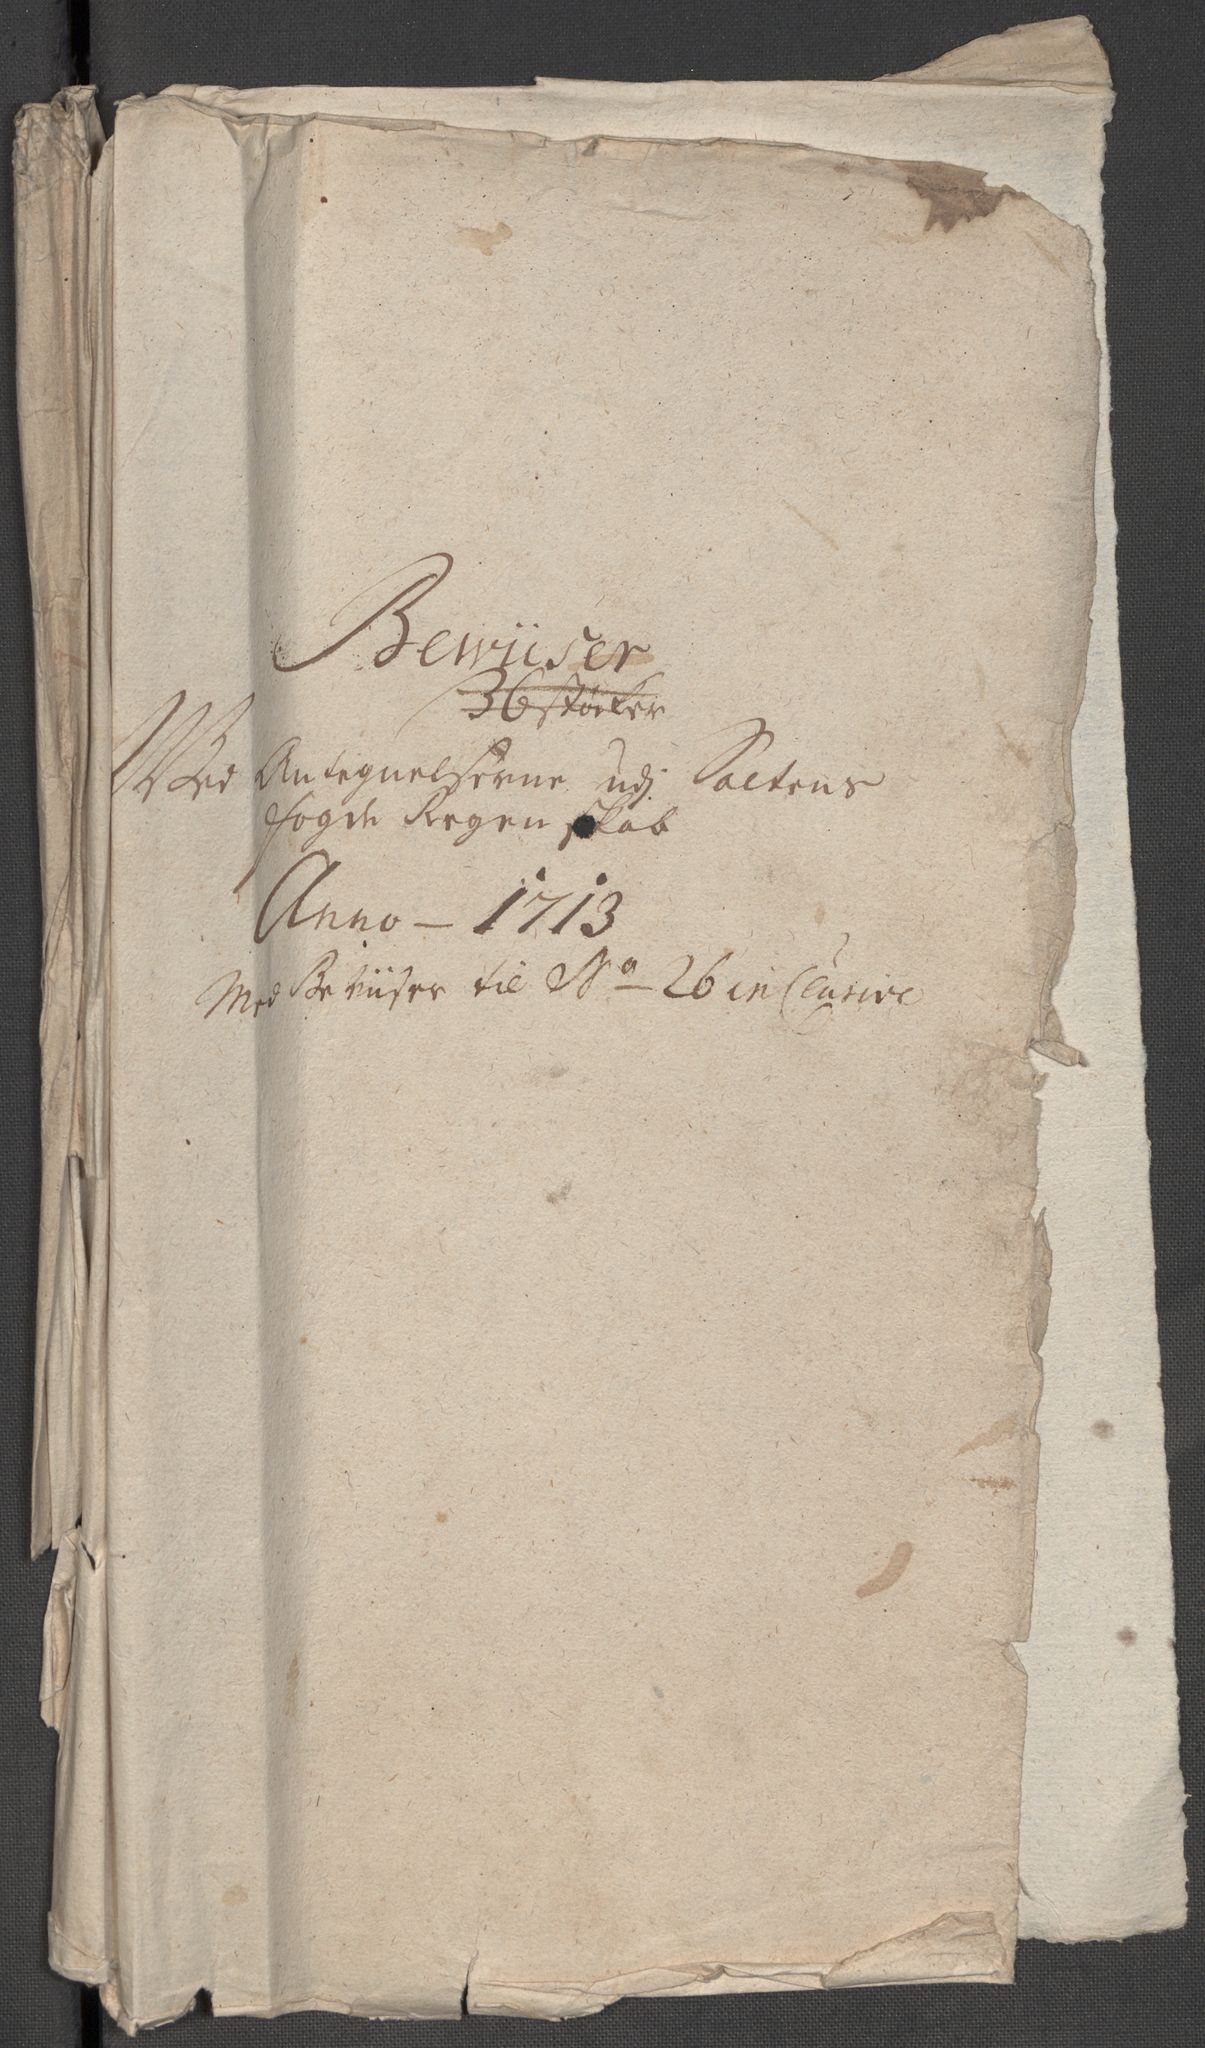 Bewiiser
36 støcker
Wed Antegnelserne udj Saltens
fogde Regenskab
Anno – 1713
Med Beviiser til No 26 inclusive